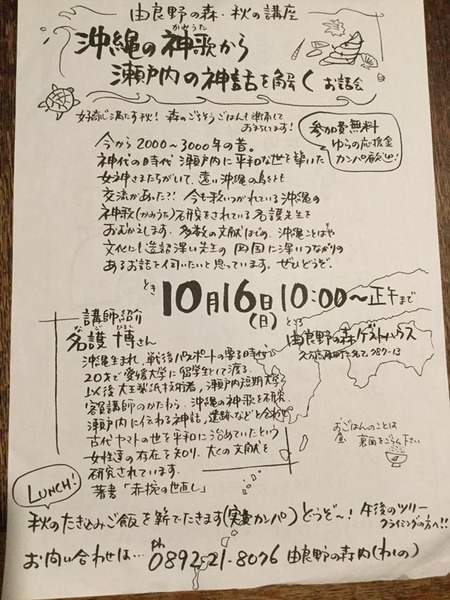 由良野の森・秋の講座
沖縄の神歌から
かみうた
瀬戸内の神話を解く お話会
好奇心満たす秋! 森のごちそうごはんも準備して
おまちしてます!
参加費無料
ゆらの応援金
カンパ歓迎!
今から2000~3000年の昔。
神代の時代 瀬戸内に平和な世を築いた
女神さまたちがいて、遠い沖縄の島々とも
交流があった?! 今も歌いつがれている沖縄の
神歌(かみうた)を研究をされている名護先生を
おむかえします。多数の文献はじめ、沖縄ことばや
文化にも造詣深い先生の 四国に深いつながりの
あるお話を伺いたいと思っています。ぜひどうぞ、
とき 10月16日(日) 10:00~正午まで
ところ 由良野の森ゲストハウス
講師紹介
なご ひろし
名護 博さん
沖縄生まれ、戦後パスポートの要る時代に
20才で愛媛大学に留学生として渡る。
以後大王製紙技術者、瀬戸内短期大学
客員講師のかたわら、沖縄の神歌を研究。
瀬戸内に伝わる神話、遺跡などと合わせ
古代ヤマトの世を平和に治めていたという
女性達の存在を知り、多くの文献を
研究されています。
著書「赤椀の世直し」
おひるごはんのことは
裏面をごらん下さい
LUNCH!
秋のたきこみご飯を薪でたきます(実費カンパ) どうぞ~!
午後のツリー
クライミングの方へ!!
お問い合わせは… Ph 0892-21-8076 由良野の森内(わしの)